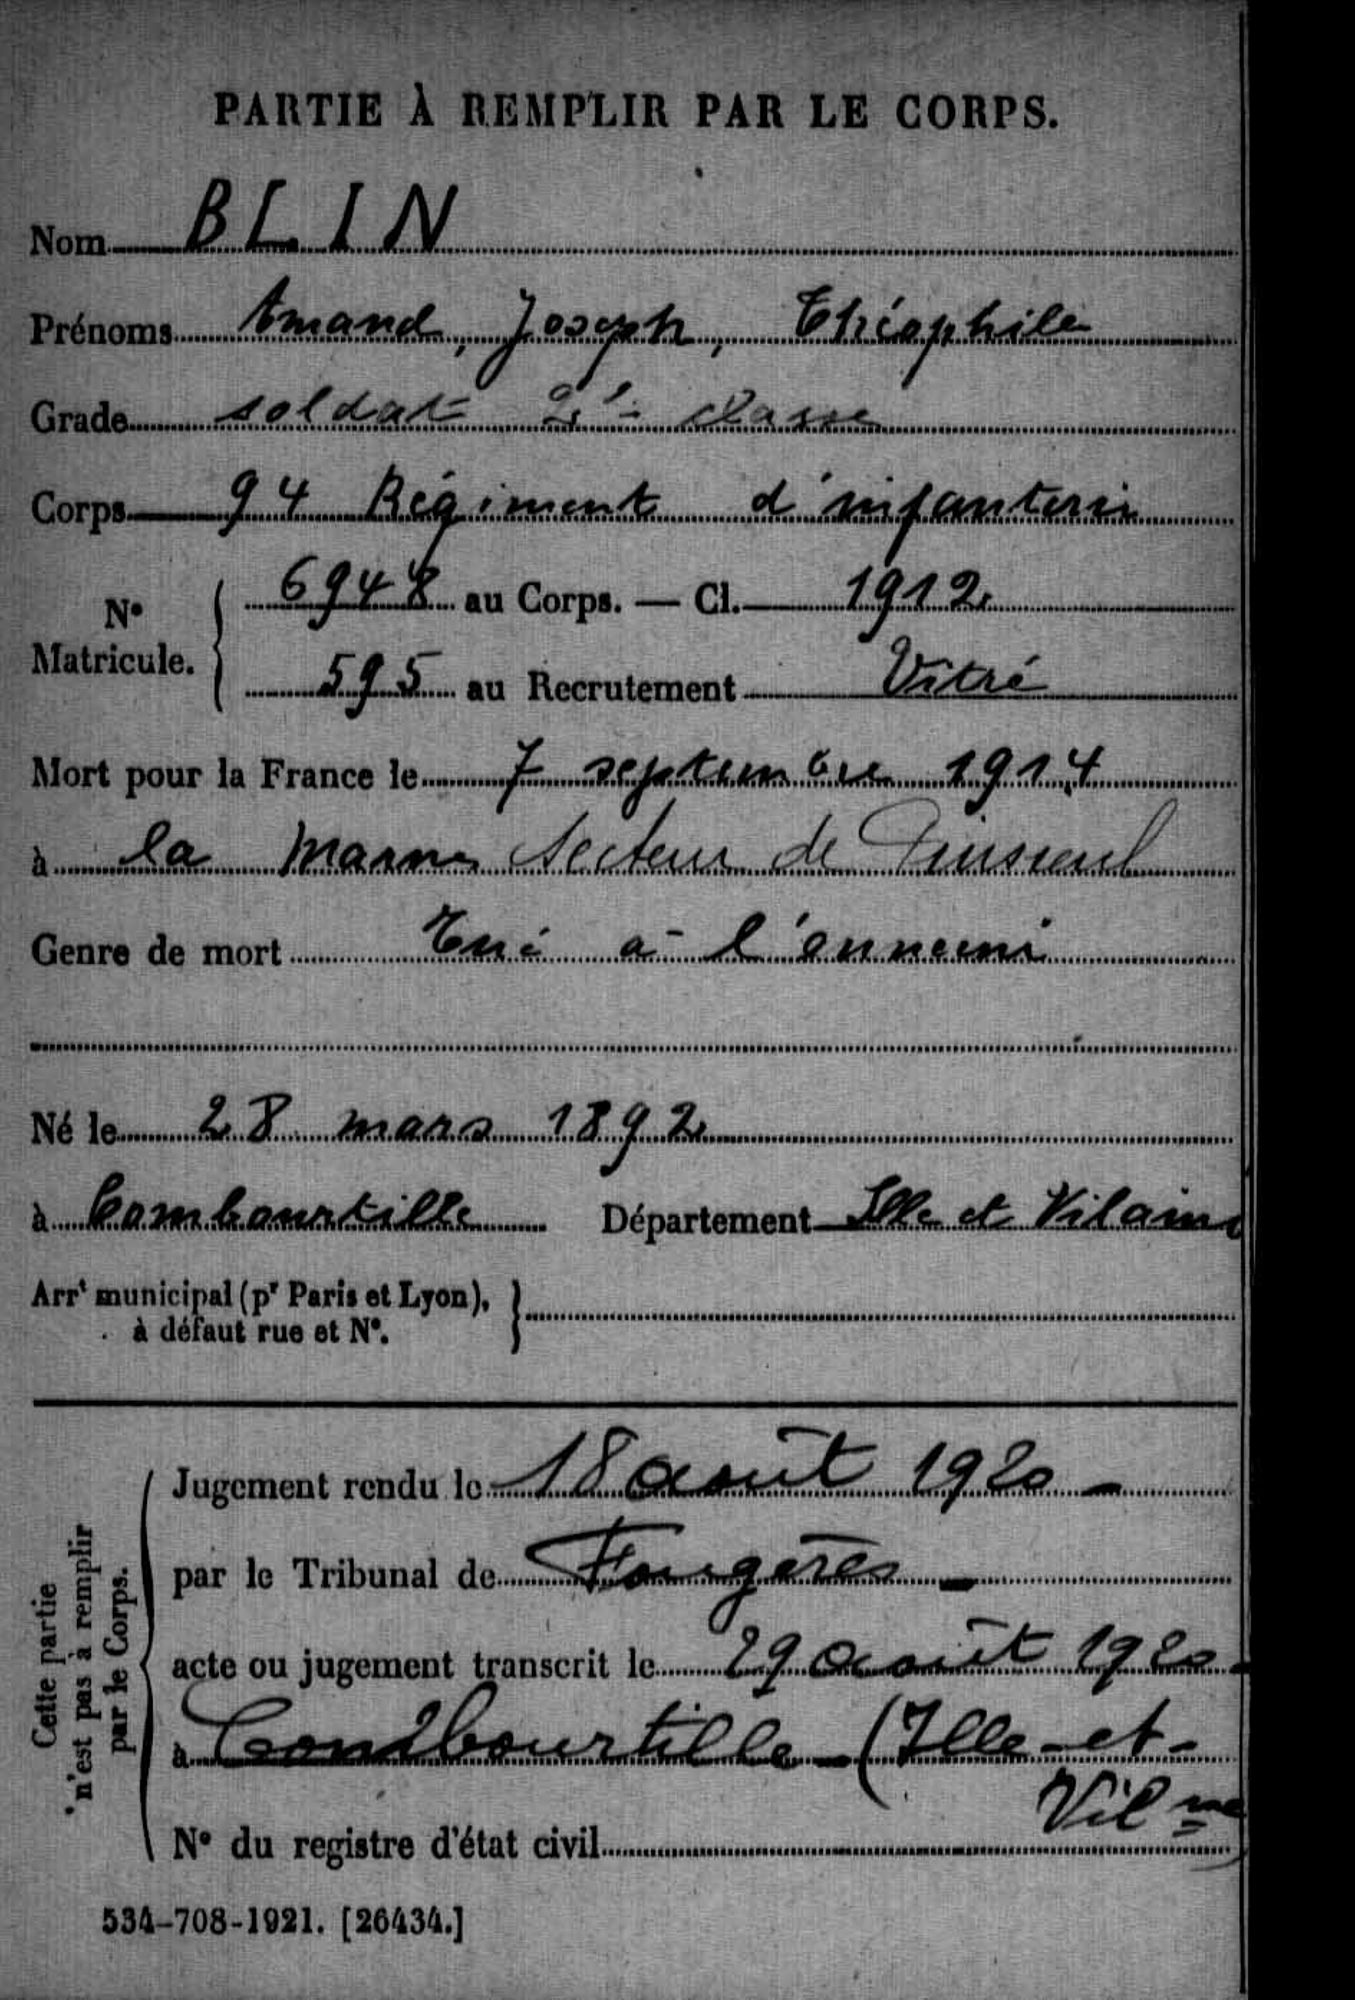 PARTIE À REMPLIR PAR LE CORPS.
Nom BLIN
Prénoms Amand, Joseph, Théophile
Grade soldat 2e classe
Corps 94 Régiment d'infanterie
N° Matricule. { 6948 au Corps. — Cl. 1912
595 au Recrutement Vitré
Mort pour la France le 7 septembre 1914
à la Marne Secteur de
Genre de mort Tué à l'ennemi
Né le 28 mars 1892
à Combourtillé Département Ille et Vilaine
Arrt municipal (pr Paris et Lyon), }
à défaut rue et N°.
Cette partie
n'est pas à remplir
par le Corps.
Jugement rendu le 18 août 1920 —
par le Tribunal de Fougères —
acte ou jugement transcrit le 29 août 1920 -
à Combourtille - (Ille-et-
Vilne
N° du registre d'état civil
534-708-1921. [26434.]